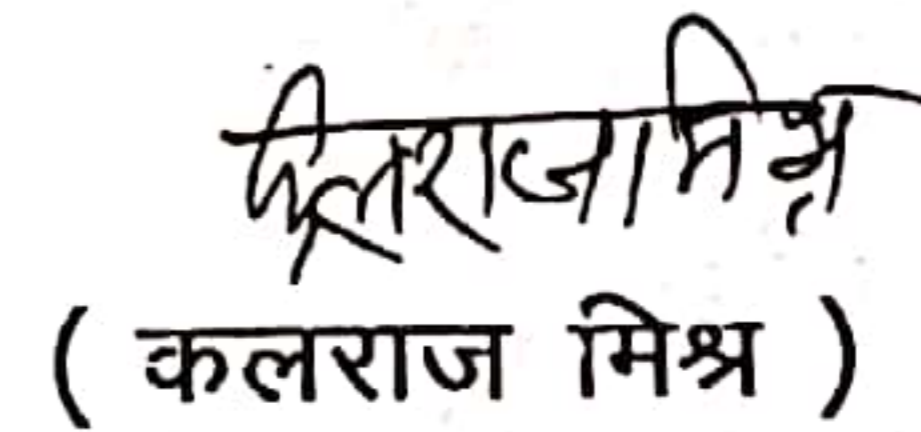 कलराज मिश्र
( कलराज मिश्र )